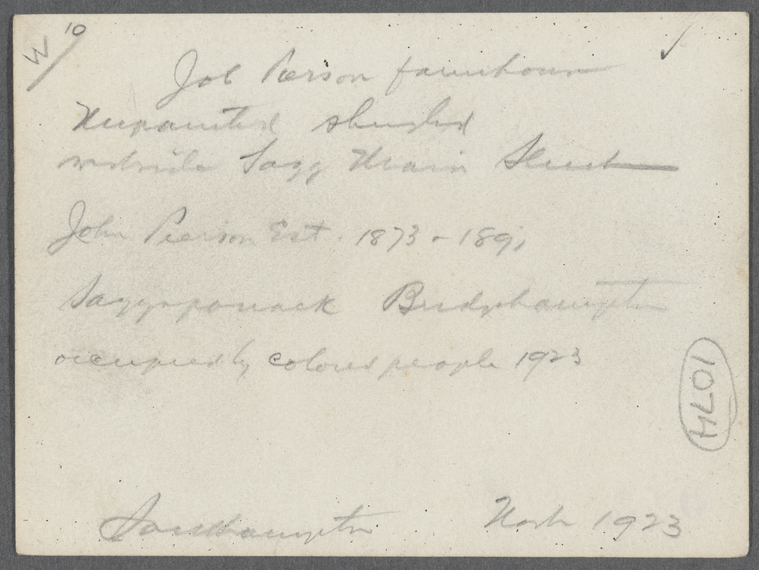 W 10
Job Pierson farmhouse
Unpainted shingled
westside Sagg Main Street
John Pierson Est. 1873 - 189
Saggaponack Bridgehampton
occupied by colored people 1923
1074
Southampton 1923